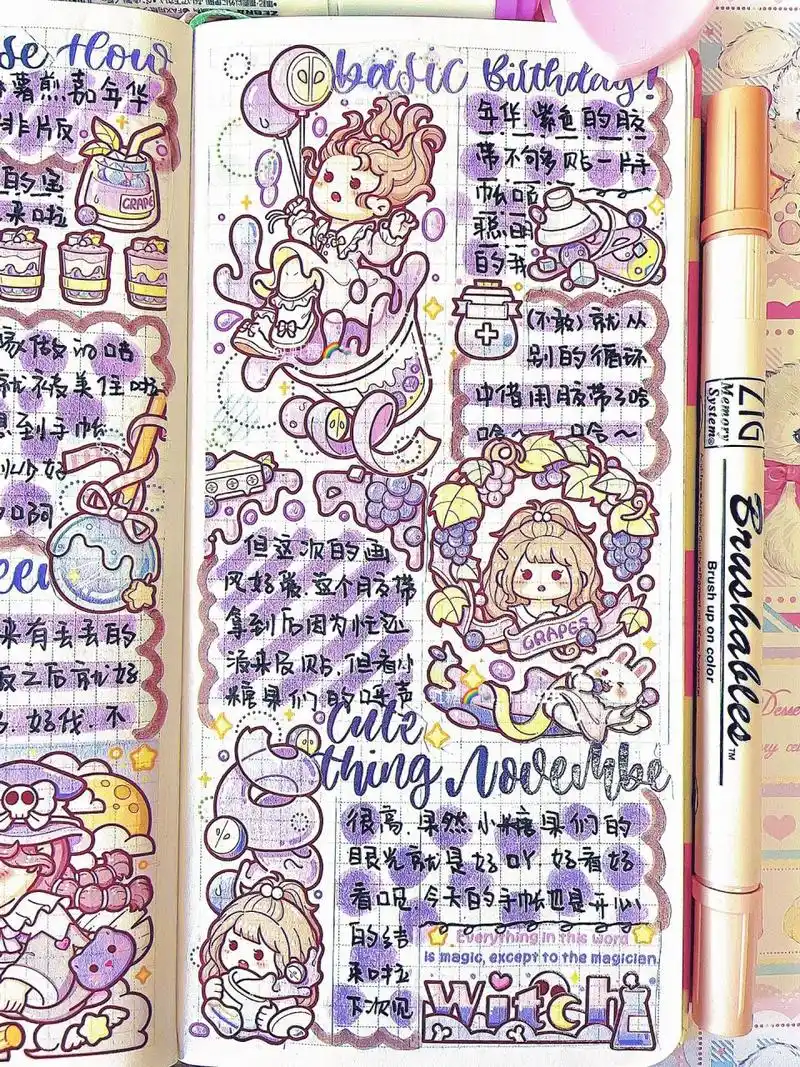 薯煎嘉年华
排版
来啦
GRAPE
家做的咕
就被美住啦
想到手帐
来有丢丢的
版之后就好
好伐.不
basic Birthday!
年华紫色的胶
带不够多贴一片手
帐呢
聪明
的我
(不敢)就从
别的循环
中借用胶带了哈
哈~ 哈~
但这次的画
风好歹.每个胶带
拿到后因为忙还
没来及贴.但看小
糖果们的
GRAPES
Cute
thing Novembe
很高.果然.小糖果们的
眼光就是好吖 好看好
看呢.今天的手帐也是开心
的结
束啦
下次见
Everything in this word
is magic, except to the magician.
witch
ZIG
Memory
System®
Brushables™
Brush up on color